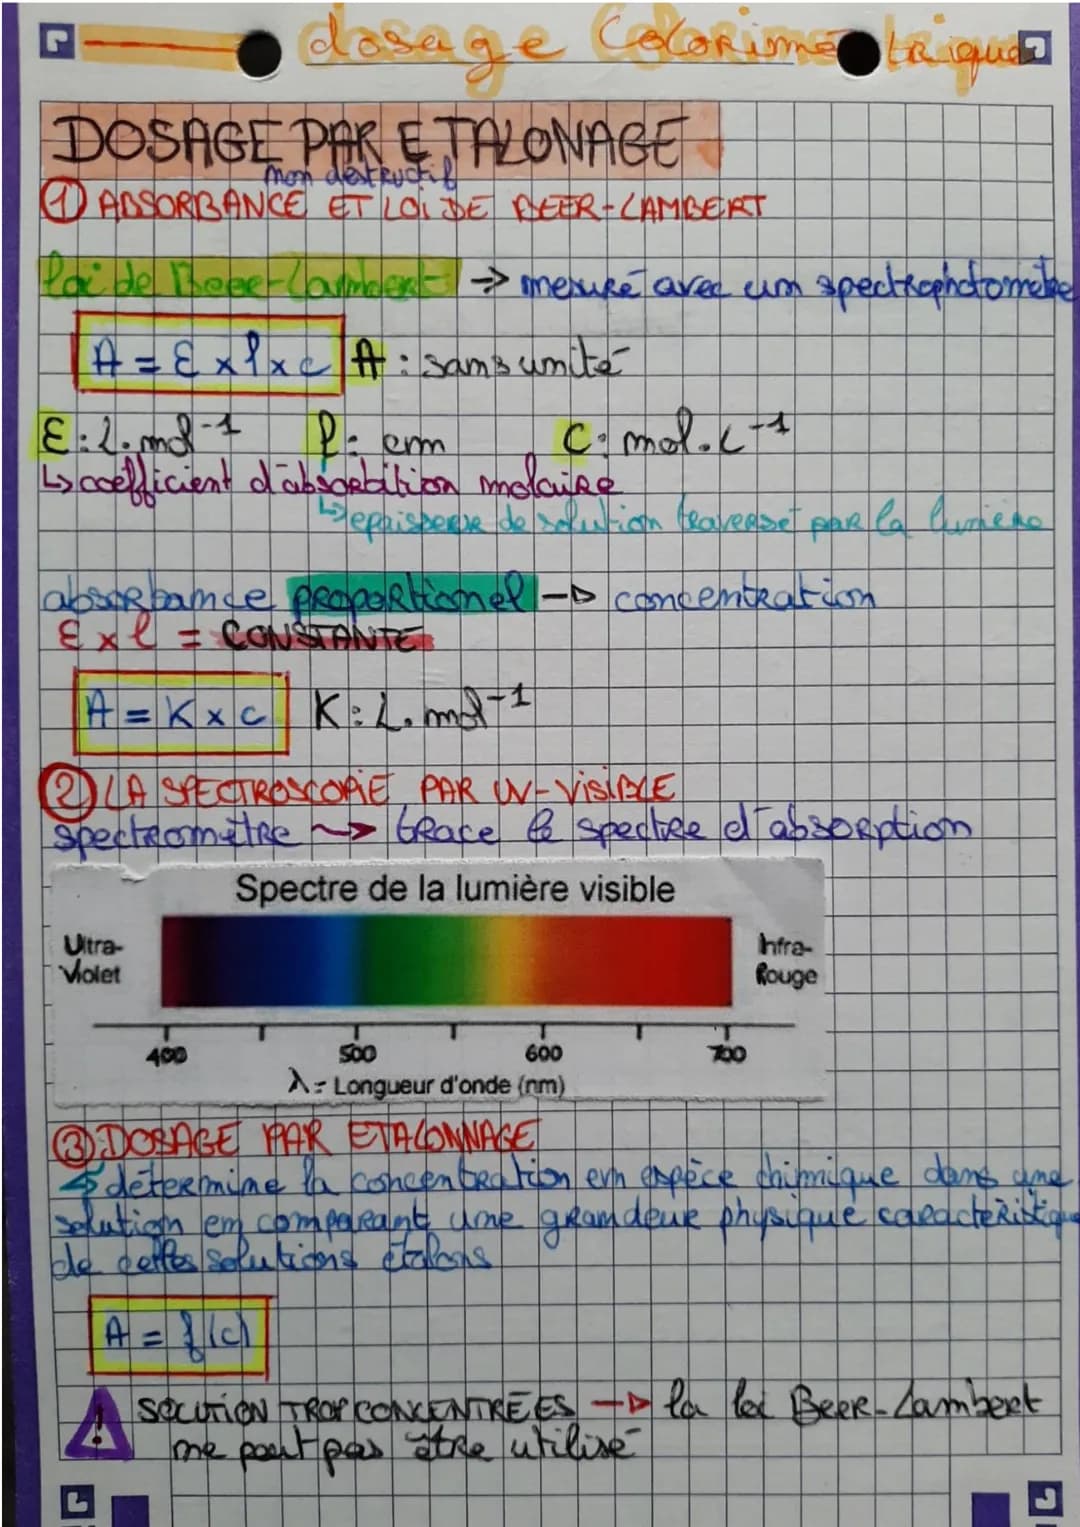 dosage Colorimétrique
DOSAGE PAR ETALONAGE
non destructif
① ABSORBANCE ET LOI DE BEER-LAMBERT
loi de Beer-Lambert → mesuré avec un spectrophotomètre
A = Ɛ x l x c A : sans unité
Ɛ : L.mol⁻¹ l : cm C : mol.L⁻¹
↳ coefficient d'absorbition molaire
↳ epaisseur de solution traversé par la lumière
absorbance proportionel → concentration
Ɛ x l = CONSTANTE
A = K x c K : L.mol⁻¹
② LA SPECTROSCOPIE PAR UV-VISIBLE
spectromètre ~> trace le spectre d'absorption
Spectre de la lumière visible
Ultra-
Violet
Infra-
Rouge
400 500 600 700
λ = Longueur d'onde (nm)
③ DOSAGE PAR ETALONNAGE
↳ détermine la concentration en espèce chimique dans une
solution em comparant une grandeur physique caractéristique
de celles solutions étalons
A = f(c)
! SOLUTION TROP CONCENTRÉES → la loi Beer-Lambert
ne peut pas être utilisé